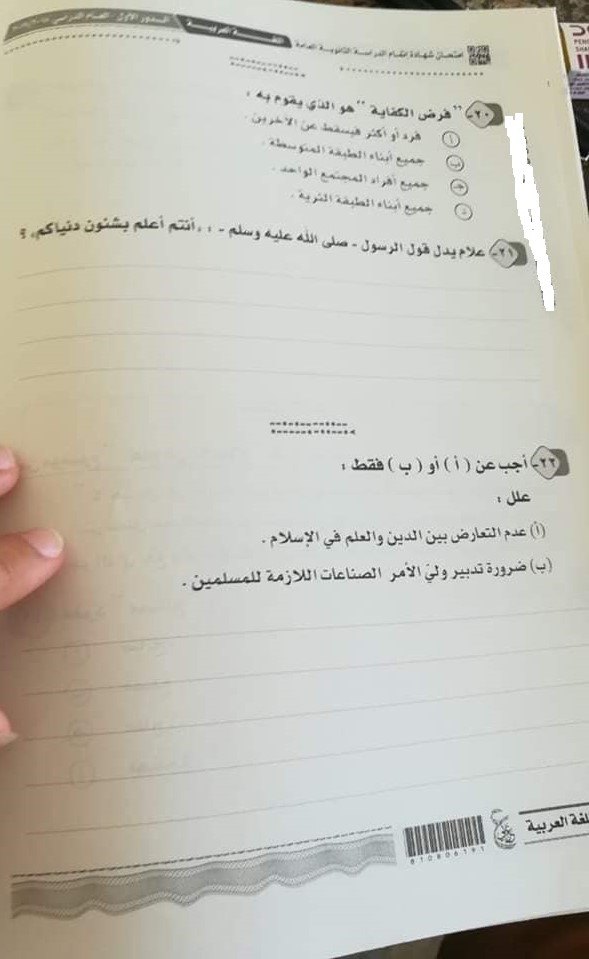 امتحان شهادة إتمام الدراسة الثانوية العامة
اللغة العربية
الدور الأول - العام الدراسي
٢٠- "فرض الكفاية" هو الذي يقوم به :
أ فرد أو أكثر فيسقط عن الآخرين .
ب جميع أبناء الطبقة المتوسطة .
جـ جميع أفراد المجتمع الواحد .
د جميع أبناء الطبقة الثرية .
٢١- علام يدل قول الرسول - صلى الله عليه وسلم - : "أنتم أعلم بشئون دنياكم" ؟
٢٢- أجب عن ( أ ) أو ( ب ) فقط :
علل :
(أ) عدم التعارض بين الدين والعلم في الإسلام .
(ب) ضرورة تدبير وليّ الأمر الصناعات اللازمة للمسلمين .
لغة العربية